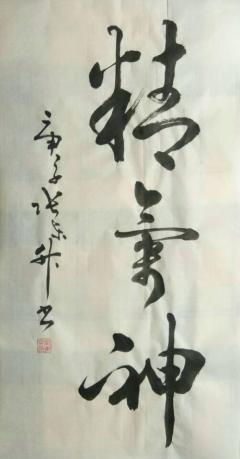 精氣神
庚子
书